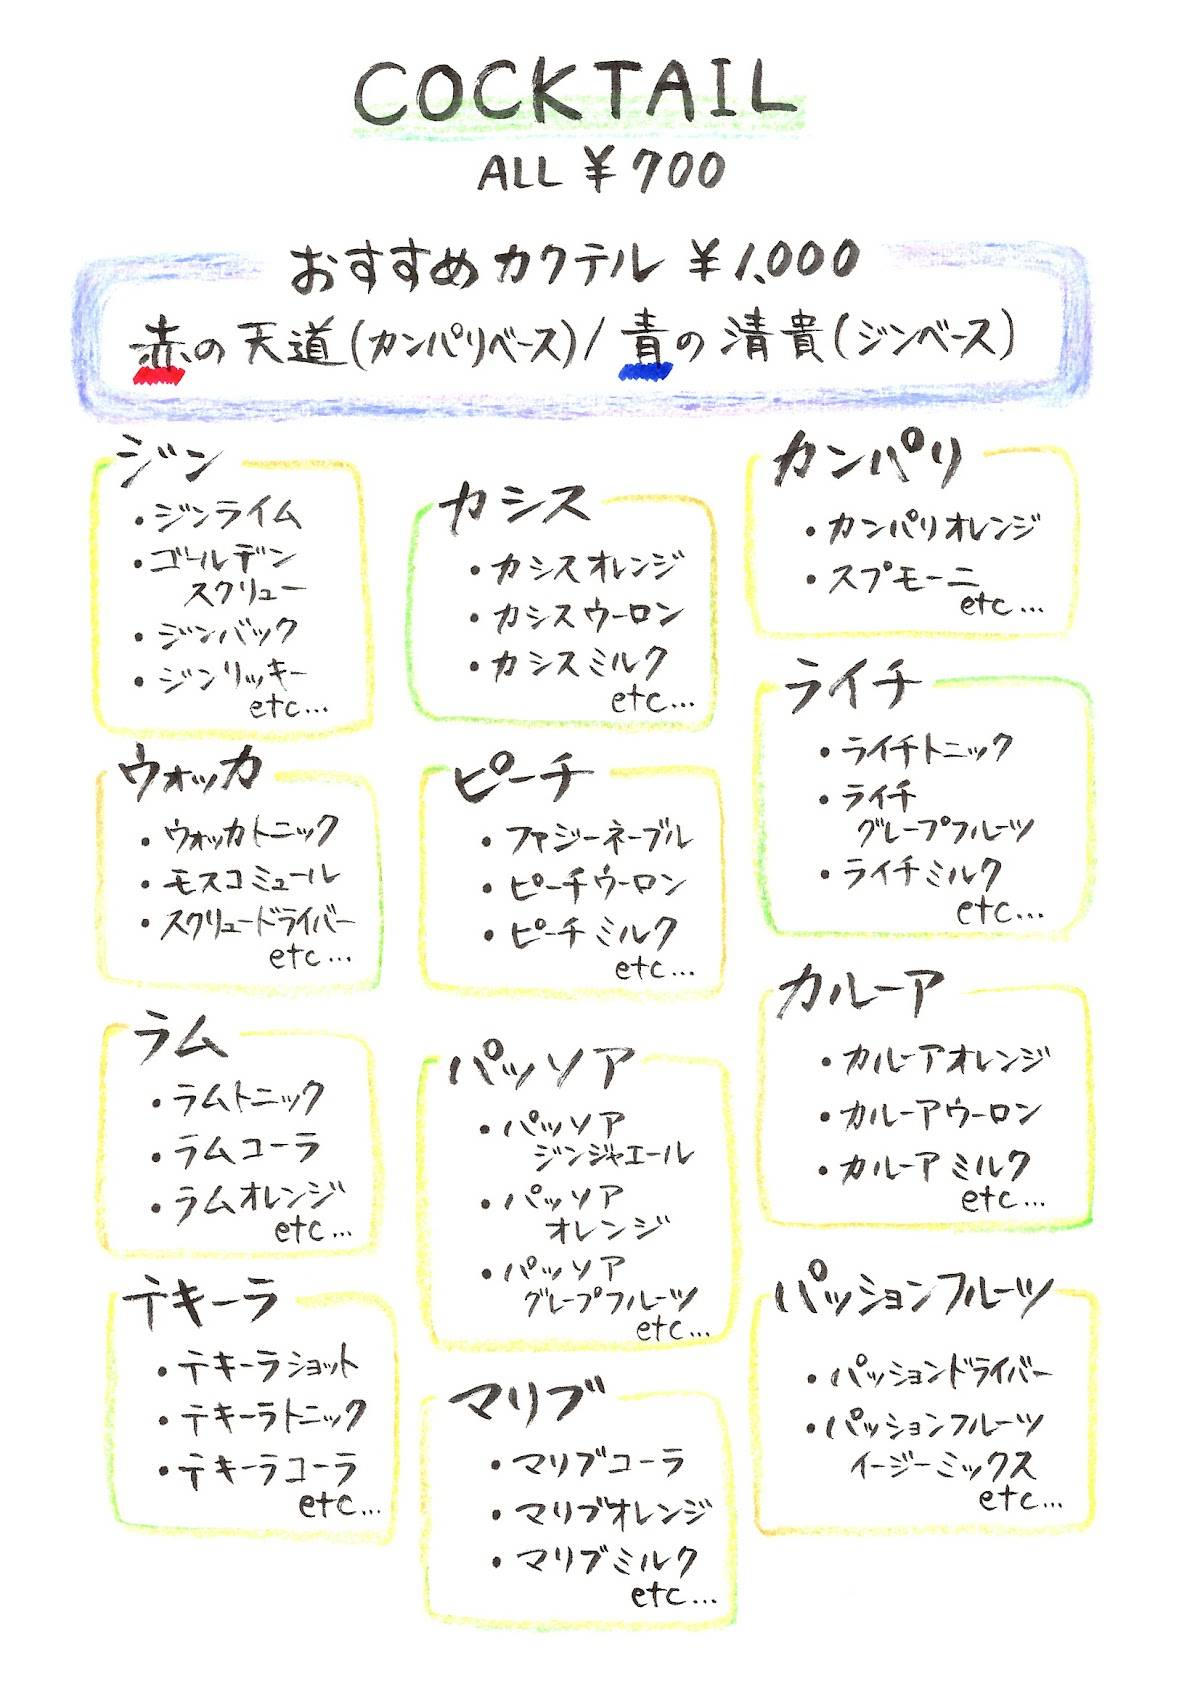 COCKTAIL
ALL ¥700
おすすめカクテル ¥1,000
赤の天道(カンパリベース)/青の清貴(ジンベース)
ジン
・ジンライム
・ゴールデン
スクリュー
・ジンバック
・ジンリッキー
etc...
ウォッカ
・ウォッカトニック
・モスコミュール
・スクリュードライバー
etc...
ラム
・ラムトニック
・ラムコーラ
・ラムオレンジ
etc...
テキーラ
・テキーラショット
・テキーラトニック
・テキーラコーラ
etc...
カシス
・カシスオレンジ
・カシスウーロン
・カシスミルク
etc...
ピーチ
・ファジーネーブル
・ピーチウーロン
・ピーチミルク
etc...
パッソア
・パッソア
ジンジャエール
・パッソア
オレンジ
・パッソア
グレープフルーツ
etc...
マリブ
・マリブコーラ
・マリブオレンジ
・マリブミルク
etc...
カンパリ
・カンパリオレンジ
・スプモーニ
etc...
ライチ
・ライチトニック
・ライチ
グレープフルーツ
・ライチミルク
etc...
カルーア
・カルーアオレンジ
・カルーアウーロン
・カルーアミルク
etc...
パッションフルーツ
・パッションドライバー
・パッションフルーツ
イージーミックス
etc...